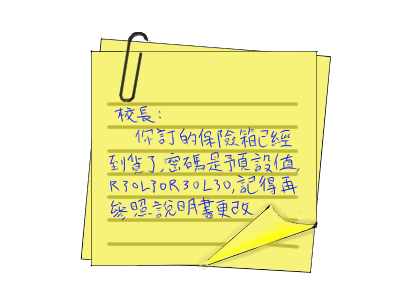 校長:
你訂的保險箱已經
到貨了,密碼是預設值,
R30L30R30L30,記得再
參照說明書更改